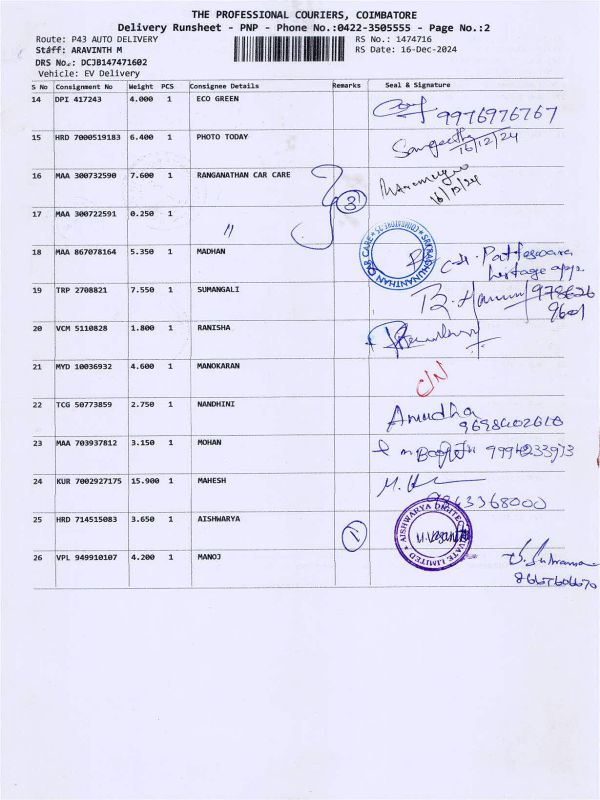 THE PROFESSIONAL COURIERS, COIMBATORE
Delivery Runsheet - PNP - Phone No.:0422-3505555 - Page No.:2
Route: P43 AUTO DELIVERY RS No.: 1474716
Staff: ARAVINTH M RS Date: 16-Dec-2024
DRS No.: DCJB147471602
Vehicle: EV Delivery
S No Consignment No Weight PCS Consignee Details Remarks Seal & Signature
14 DPI 417243 4.000 1 ECO GREEN 9976976767
15 HRD 7000519183 6.400 1 PHOTO TODAY Sangeetha
16/12/24
16 MAA 300732590 7.600 1 RANGANATHAN CAR CARE
3 16/12/24
17 MAA 300722591 0.250 1 〃
18 MAA 867078164 5.350 1 MADHAN
19 TRP 2708821 7.550 1 SUMANGALI
9601
20 VCM 5110828 1.800 1 RANISHA
21 MYD 10036932 4.600 1 MANOKARAN C/N
22 TCG 50773859 2.750 1 NANDHINI Amudha
23 MAA 703937812 3.150 1 MOHAN 9994233973
24 KUR 7002927175 15.900 1 MAHESH
9843368000
25 HRD 714515083 3.650 1 AISHWARYA 1 AISHWARYA DIGITEC PRIVATE LIMITED
26 VPL 949910107 4.200 1 MANOJ